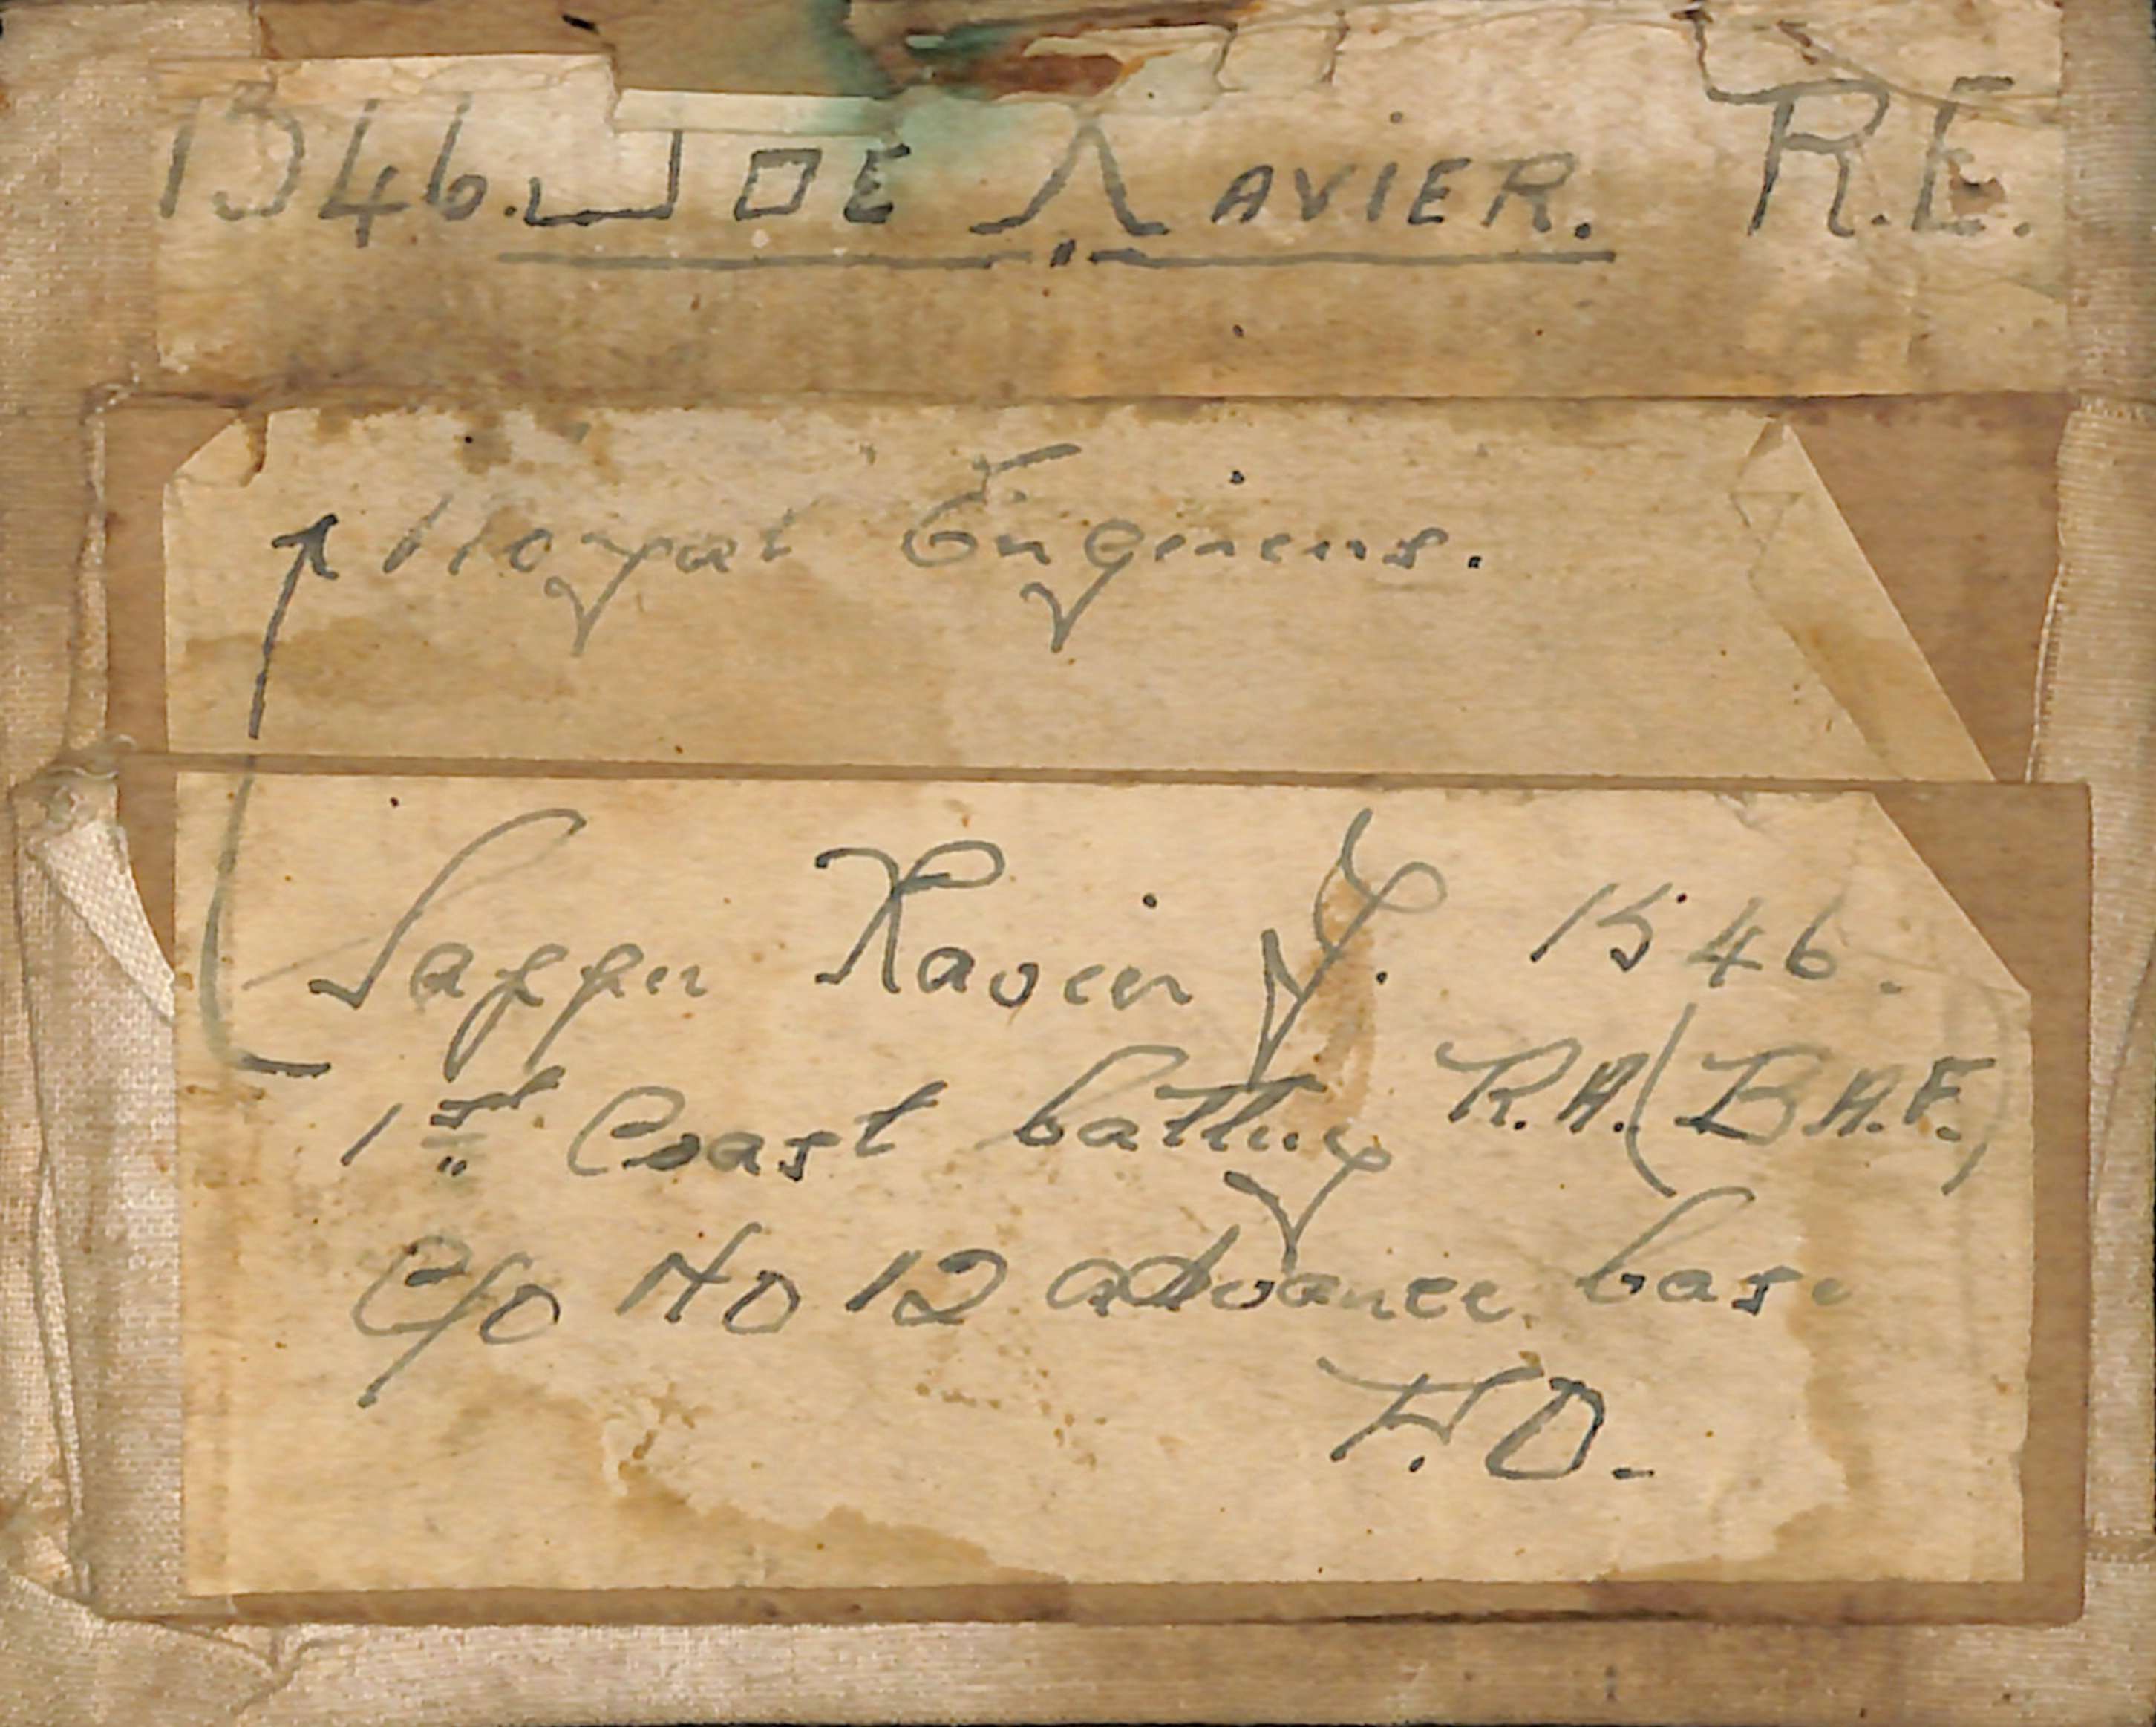 1546. JOE XAVIER. R.E.
Royal Engineers.
Sapper Xavier J. 1546.
1st Coast battery R.A. (B.A.F.)
C/o No 12 advance base